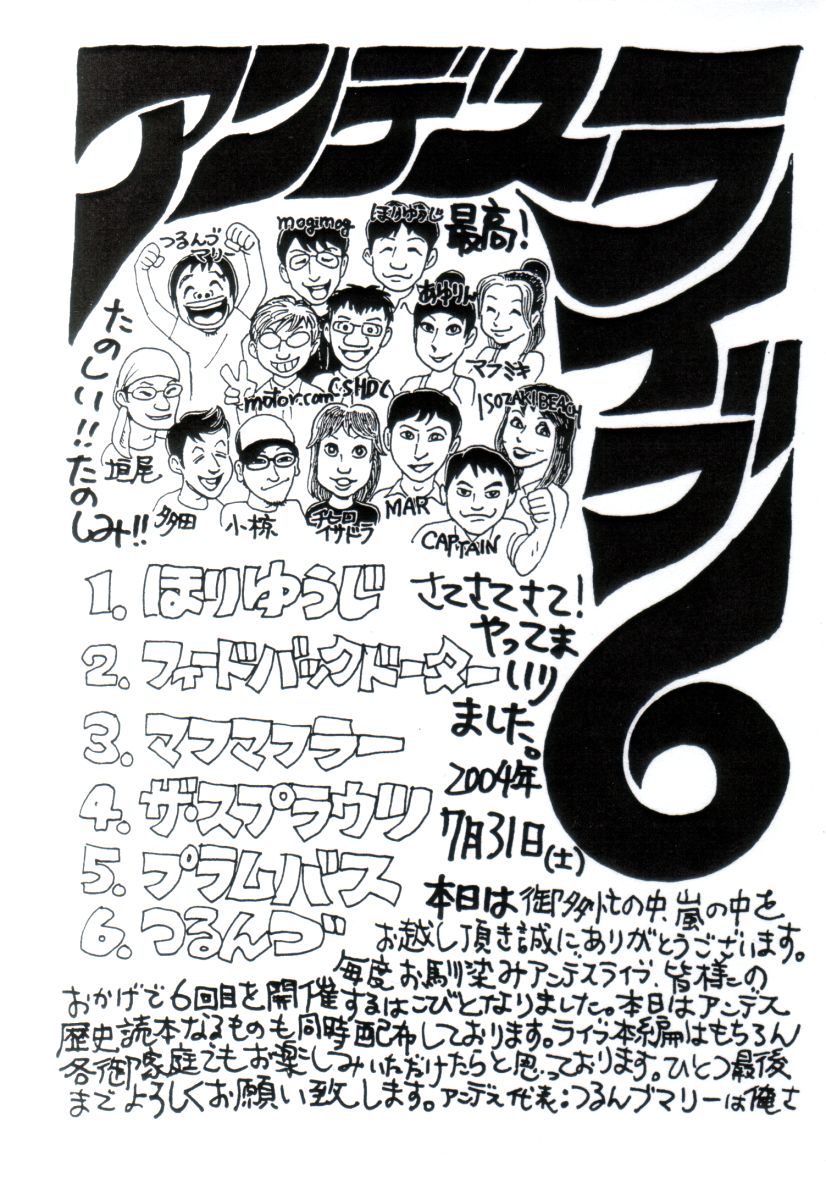 アンデスライブ6
つるんづ
マリー
mogimog
ほりゆうじ
最高!
たのしい!!たのしみ!!
motor.com
C.SHDL
あゆりん
マフミキ
ISOZAKI BEACH
垣尾
多田
小椋
チヒロ
イサドラ
MAR
CAPTAIN
1. ほりゆうじ
2. フィードバックドーター
3. マフマフラー
4. ザ・スプラウツ
5. プラムバス
6. つるんづ
さてさてさて!
やってま
いり
ました。
2004年
7月31日(土)
本日は御多忙の中、嵐の中を
お越し頂き誠にありがとうございます。
毎度お馴染みアンデスライブ、皆様の
おかげで6回目を開催するはこびとなりました。本日はアンデス
歴史読本なるものも同時配布しております。ライブ本編はもちろん
各御家庭でもお楽しみいただけたらと思っております。ひとつ最後
までよろしくお願い致します。アンデス代表:つるんづマリーは俺さ